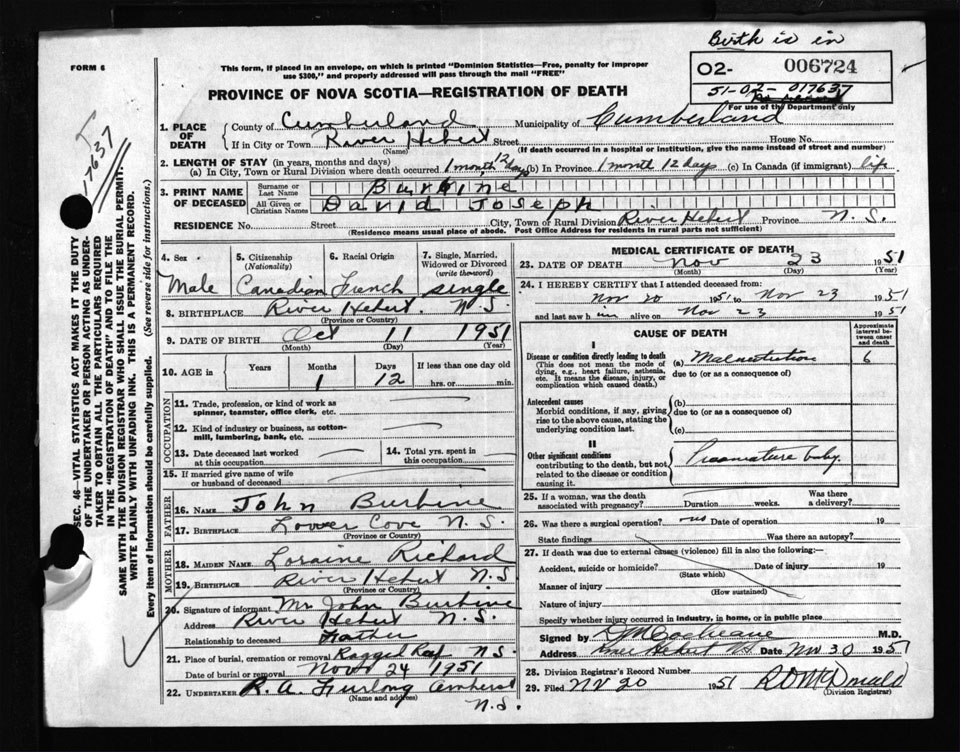 Birth is in
FORM 6
This form, if placed in an envelope, on which is printed "Dominion Statistics—Free, penalty for improper
use $300," and properly addressed will pass through the mail "FREE"
02- 006724
51-02-017637
For use of the Department only
PROVINCE OF NOVA SCOTIA—REGISTRATION OF DEATH
1. PLACE OF DEATH
County of Cumberland Municipality of Cumberland
If in City or Town River Hebert Street House No.
(Name) (If death occurred in a hospital or institution, give the name instead of street and number)
2. LENGTH OF STAY (in years, months and days)
(a) In City, Town or Rural Division where death occurred 1 month, 12 days (b) In Province 1 month 12 days (c) In Canada (if immigrant) life
3. PRINT NAME OF DECEASED
Surname or Last Name Burbine
All Given or Christian Names David Joseph
RESIDENCE No. Street City, Town or Rural Division River Hebert Province N.S.
(Residence means usual place of abode. Post Office Address for residents in rural parts not sufficient)
17637
SEC. 46—VITAL STATISTICS ACT MAKES IT THE DUTY
OF THE UNDERTAKER OR PERSON ACTING AS UNDER-
TAKER TO OBTAIN ALL THE PARTICULARS REQUIRED
IN THE "REGISTRATION OF DEATH" AND TO FILE THE
SAME WITH THE DIVISION REGISTRAR WHO SHALL ISSUE THE BURIAL PERMIT.
WRITE PLAINLY WITH UNFADING INK. THIS IS A PERMANENT RECORD.
Every item of Information should be carefully supplied. (See reverse side for instructions.)
4. Sex Male
5. Citizenship (Nationality) Canadian
6. Racial Origin French
7. Single, Married, Widowed or Divorced (write the word) single
8. BIRTHPLACE River Hebert N.S.
(Province or Country)
9. DATE OF BIRTH Oct 11 1951
(Month) (Day) (Year)
10. AGE in Years Months 1 Days 12 If less than one day old
hrs. or min.
OCCUPATION
11. Trade, profession, or kind of work as
spinner, teamster, office clerk, etc.
12. Kind of industry or business, as cotton-
mill, lumbering, bank, etc.
13. Date deceased last worked
at this occupation
14. Total yrs. spent in
this occupation
15. If married give name of wife
or husband of deceased
FATHER
16. NAME John Burbine
17. BIRTHPLACE Lower Cove N.S.
(Province or Country)
MOTHER
18. MAIDEN NAME Loraine Richard
19. BIRTHPLACE River Hebert N.S
(Province or Country)
20. Signature of informant Mr John Burbine
Address River Hebert N.S.
Relationship to deceased Father
21. Place of burial, cremation or removal Ragged Reef N.S
Date of burial or removal Nov 24 1951
22. UNDERTAKER R. A. Furlong Amherst
(Name and address) N.S.
MEDICAL CERTIFICATE OF DEATH
23. DATE OF DEATH Nov 23 1951
(Month) (Day) (Year)
24. I HEREBY CERTIFY that I attended deceased from:
Nov 20 1951 to Nov 23 1951
and last saw him alive on Nov 23 1951
CAUSE OF DEATH
Approximate interval between onset and death
I
Disease or condition directly leading to death
(This does not mean the mode of
dying, e.g., heart failure, asthenia,
etc. It means the disease, injury, or
complication which caused death.)
(a) Malnutrition 6
due to (or as a consequence of)
Antecedent causes
Morbid conditions, if any, giving
rise to the above cause, stating the
underlying condition last.
(b)
due to (or as a consequence of)
(c)
II
Other significant conditions
contributing to the death, but not
related to the disease or condition
causing it.
Praemature baby.
25. If a woman, was the death
associated with pregnancy? Duration weeks. Was there
a delivery?
26. Was there a surgical operation? no Date of operation 19
State findings Was there an autopsy?
27. If death was due to external causes (violence) fill in also the following:—
Accident, suicide or homicide? Date of injury 19
(State which)
Manner of injury
(How sustained)
Nature of injury
Specify whether injury occurred in industry, in home, or in public place
Signed by D M Cochrane M.D.
Address River Hebert NS Date Nov 30 1951
28. Division Registrar's Record Number
29. Filed NV 20 1951 McDonald
(Division Registrar)